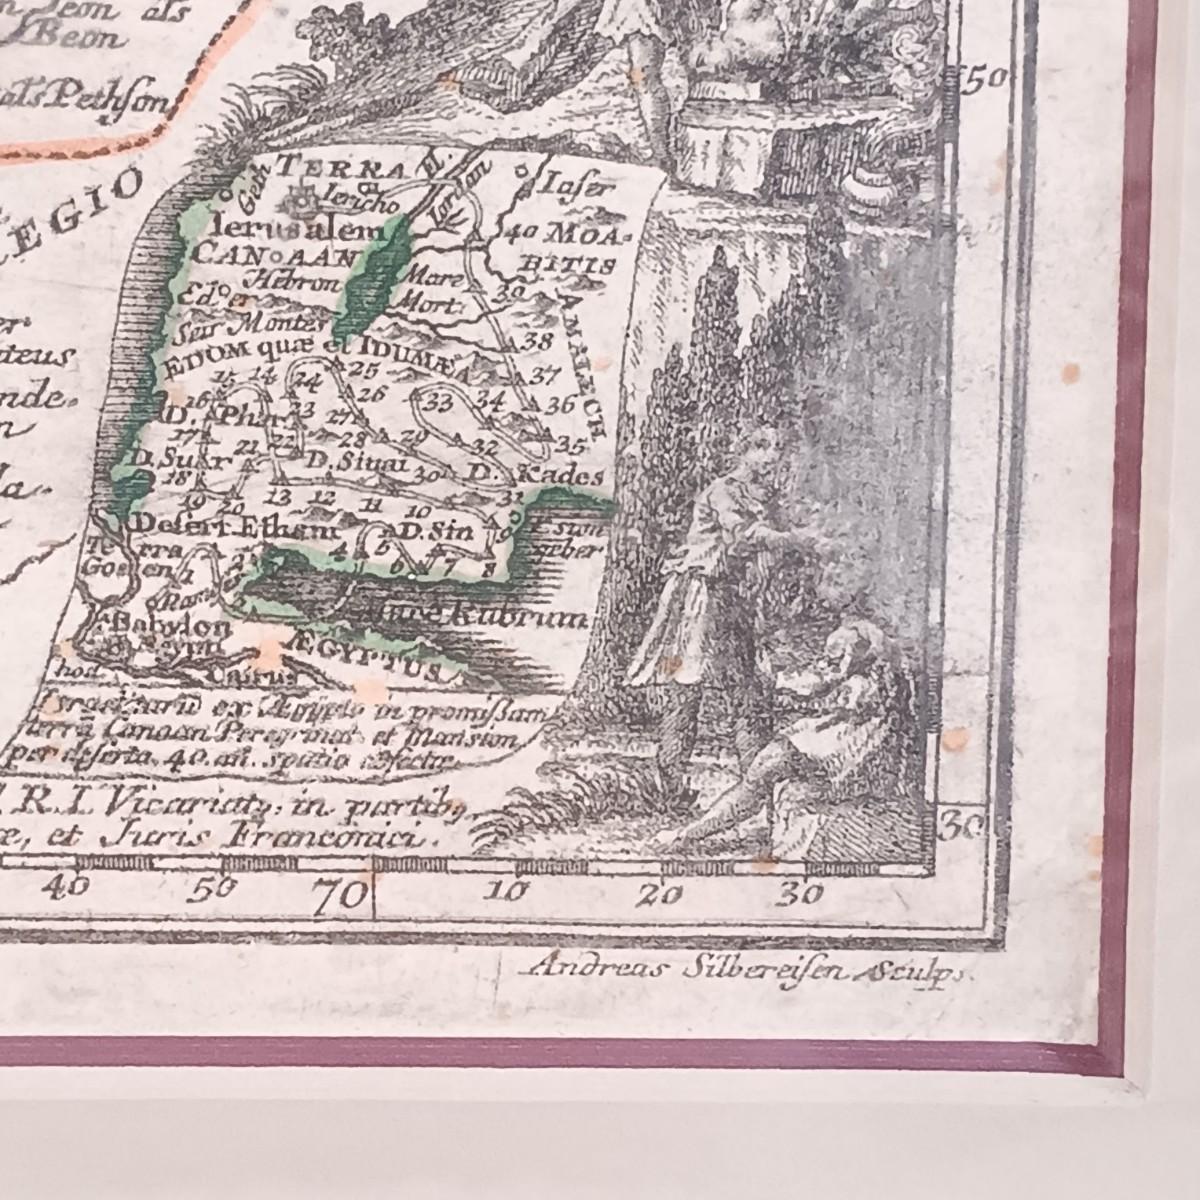 Jeon als
Beon
als Pethson
REGIO
50
TERRA
Fl. Jordan
Gesa
Iericho
Iaser
Ierusalem
40 MOA-
BITIS
CANAAN
Hebron
Mare
Mort.
39
Eder
Seir Montes
38
AMALECH
EDOM quæ et IDUMÆA
37
15 14 24 25 26 33 34 36
16 D. Phar 23 27
17 22 28 29 32 35
D. Suhr 21 D. Sinai 30 D. Kades
18 31
19 20 13 12 11 10
Desert Etham D. Sin 9 Esion
geber
Terra
Gosen
1 2 3 4 5 6 7 8
Mare Rubrum
Babylon
Ægypti
ÆGYPTUS
Cairus
hod.
Israelitarū ex Ægypto in promissam
terrā Canaan Peregrinat. et Mansion
per deserta 40. añ. spatio
S. R. I. Vicariatq; in partibq
et Juris Franconici.
30
40 50 70 10 20 30
Andreas Silbereisen Sculps.